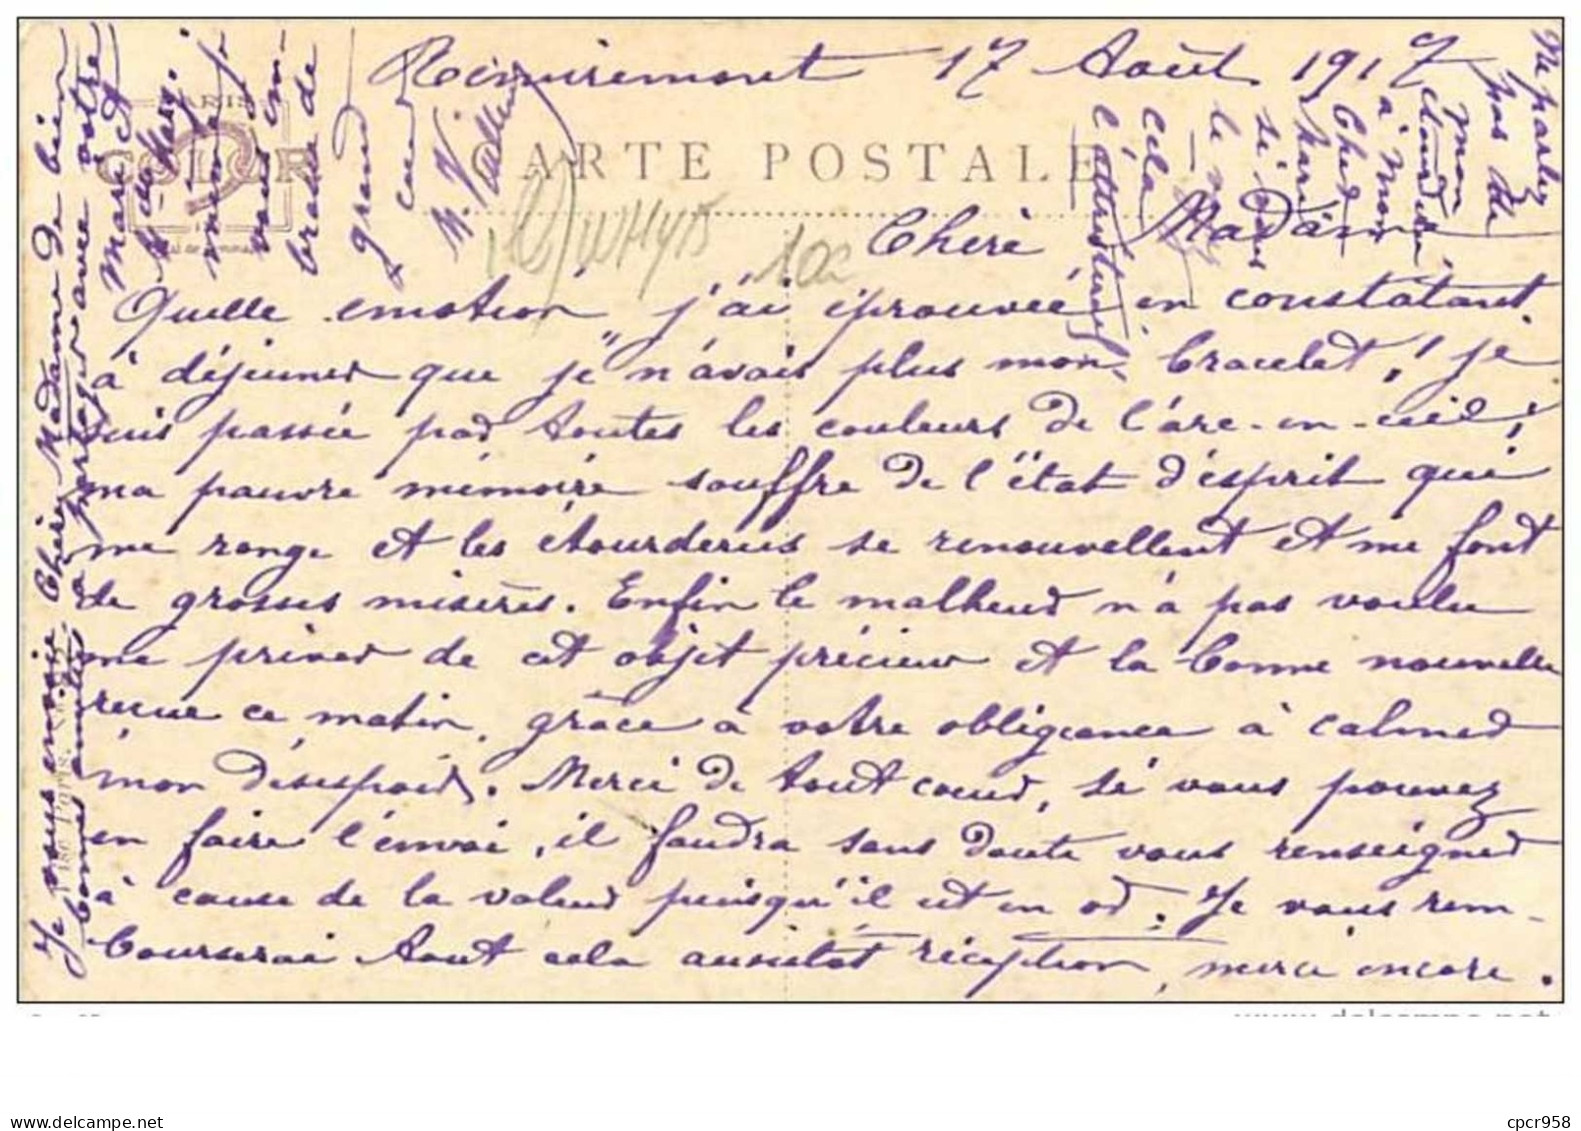 Remiremont 17 Août 1917
CARTE POSTALE
PARIS
COLOR
Chère Madame
Quelle emotion j'ai éprouvée en constatant
à déjeuner que je n'avais plus mon bracelet, ! je
suis passée par toutes les couleurs de l'arc-en-ciel,
ma pauvre mémoire souffre de l'état d'esprit qui
me ronge et les étourderies se renouvellent et me font
de grosses misères. Enfin le malheur n'a pas voulu
me priver de cet objet précieux et la bonne nouvelle
reçue ce matin, grâce à votre obligeance à calmer
mon désespoir. Merci de tout coeur, si vous pouvez
en faire l'envoi, il faudra sans doute vous renseigner
à cause de la valeur puisqu'il est en or. Je vous rem-
bourserai tout cela aussitôt réception, merci encore.
Je vous envoie Chère Madame de bien
bonnes amitiés à partager avec votre
Mari et
Melle Marg.
vous em-
brasse de
grand
coeur
Ne parlez
pas de
mon
étourderie
à Mon
Cher
Mari
si vous
le
cela
l'attristerait
100
www.delcampe.net
cpcr958